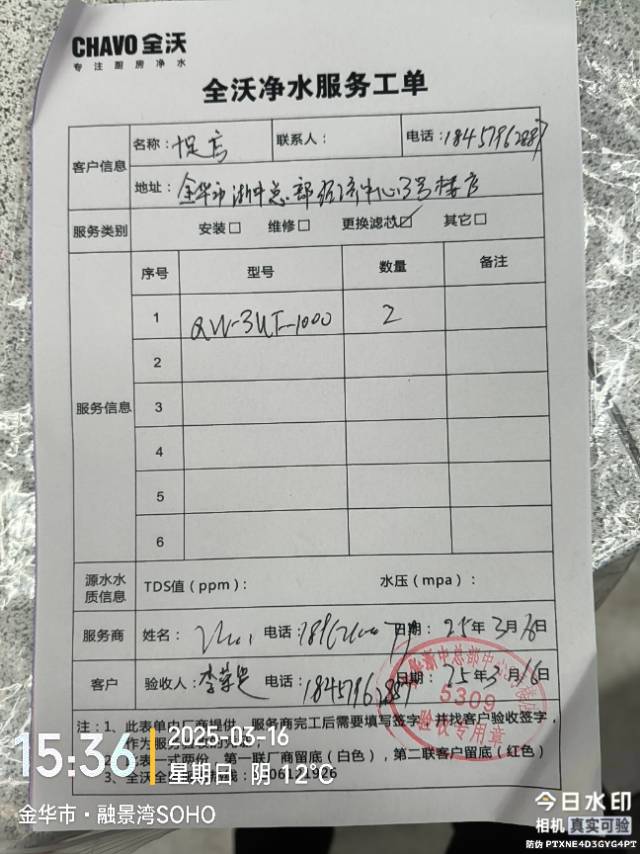 CHAVO 全沃
专注厨房净水
全沃净水服务工单
客户信息
名称： 联系人： 电话：18457962887
地址：金华市浙中总部经济中心3号楼店
服务类别 安装□ 维修□ 更换滤芯☑ 其它□
服务信息
序号 型号 数量 备注
1 QW-3UF-1000 2
2
3
4
5
6
源水水质信息 TDS值（ppm）： 水压（mpa）：
服务商 姓名： 电话： 日期：25年3月16日
客户 验收人：李 电话：18457962887 日期：25年3月16日
注：1、此表单由厂商提供，服务商完工后需要填写签字，并找客户验收签字，
作为服务
表一式两份，第一联厂商留底（白色），第二联客户留底（红色）
3、全沃全 06121926
总部中心
5309
验收专用章
15:36
2025-03-16
星期日 阴 12℃
金华市·融景湾SOHO
今日水印
相机 真实可验
防伪 PTXNE4D3GYG4PT